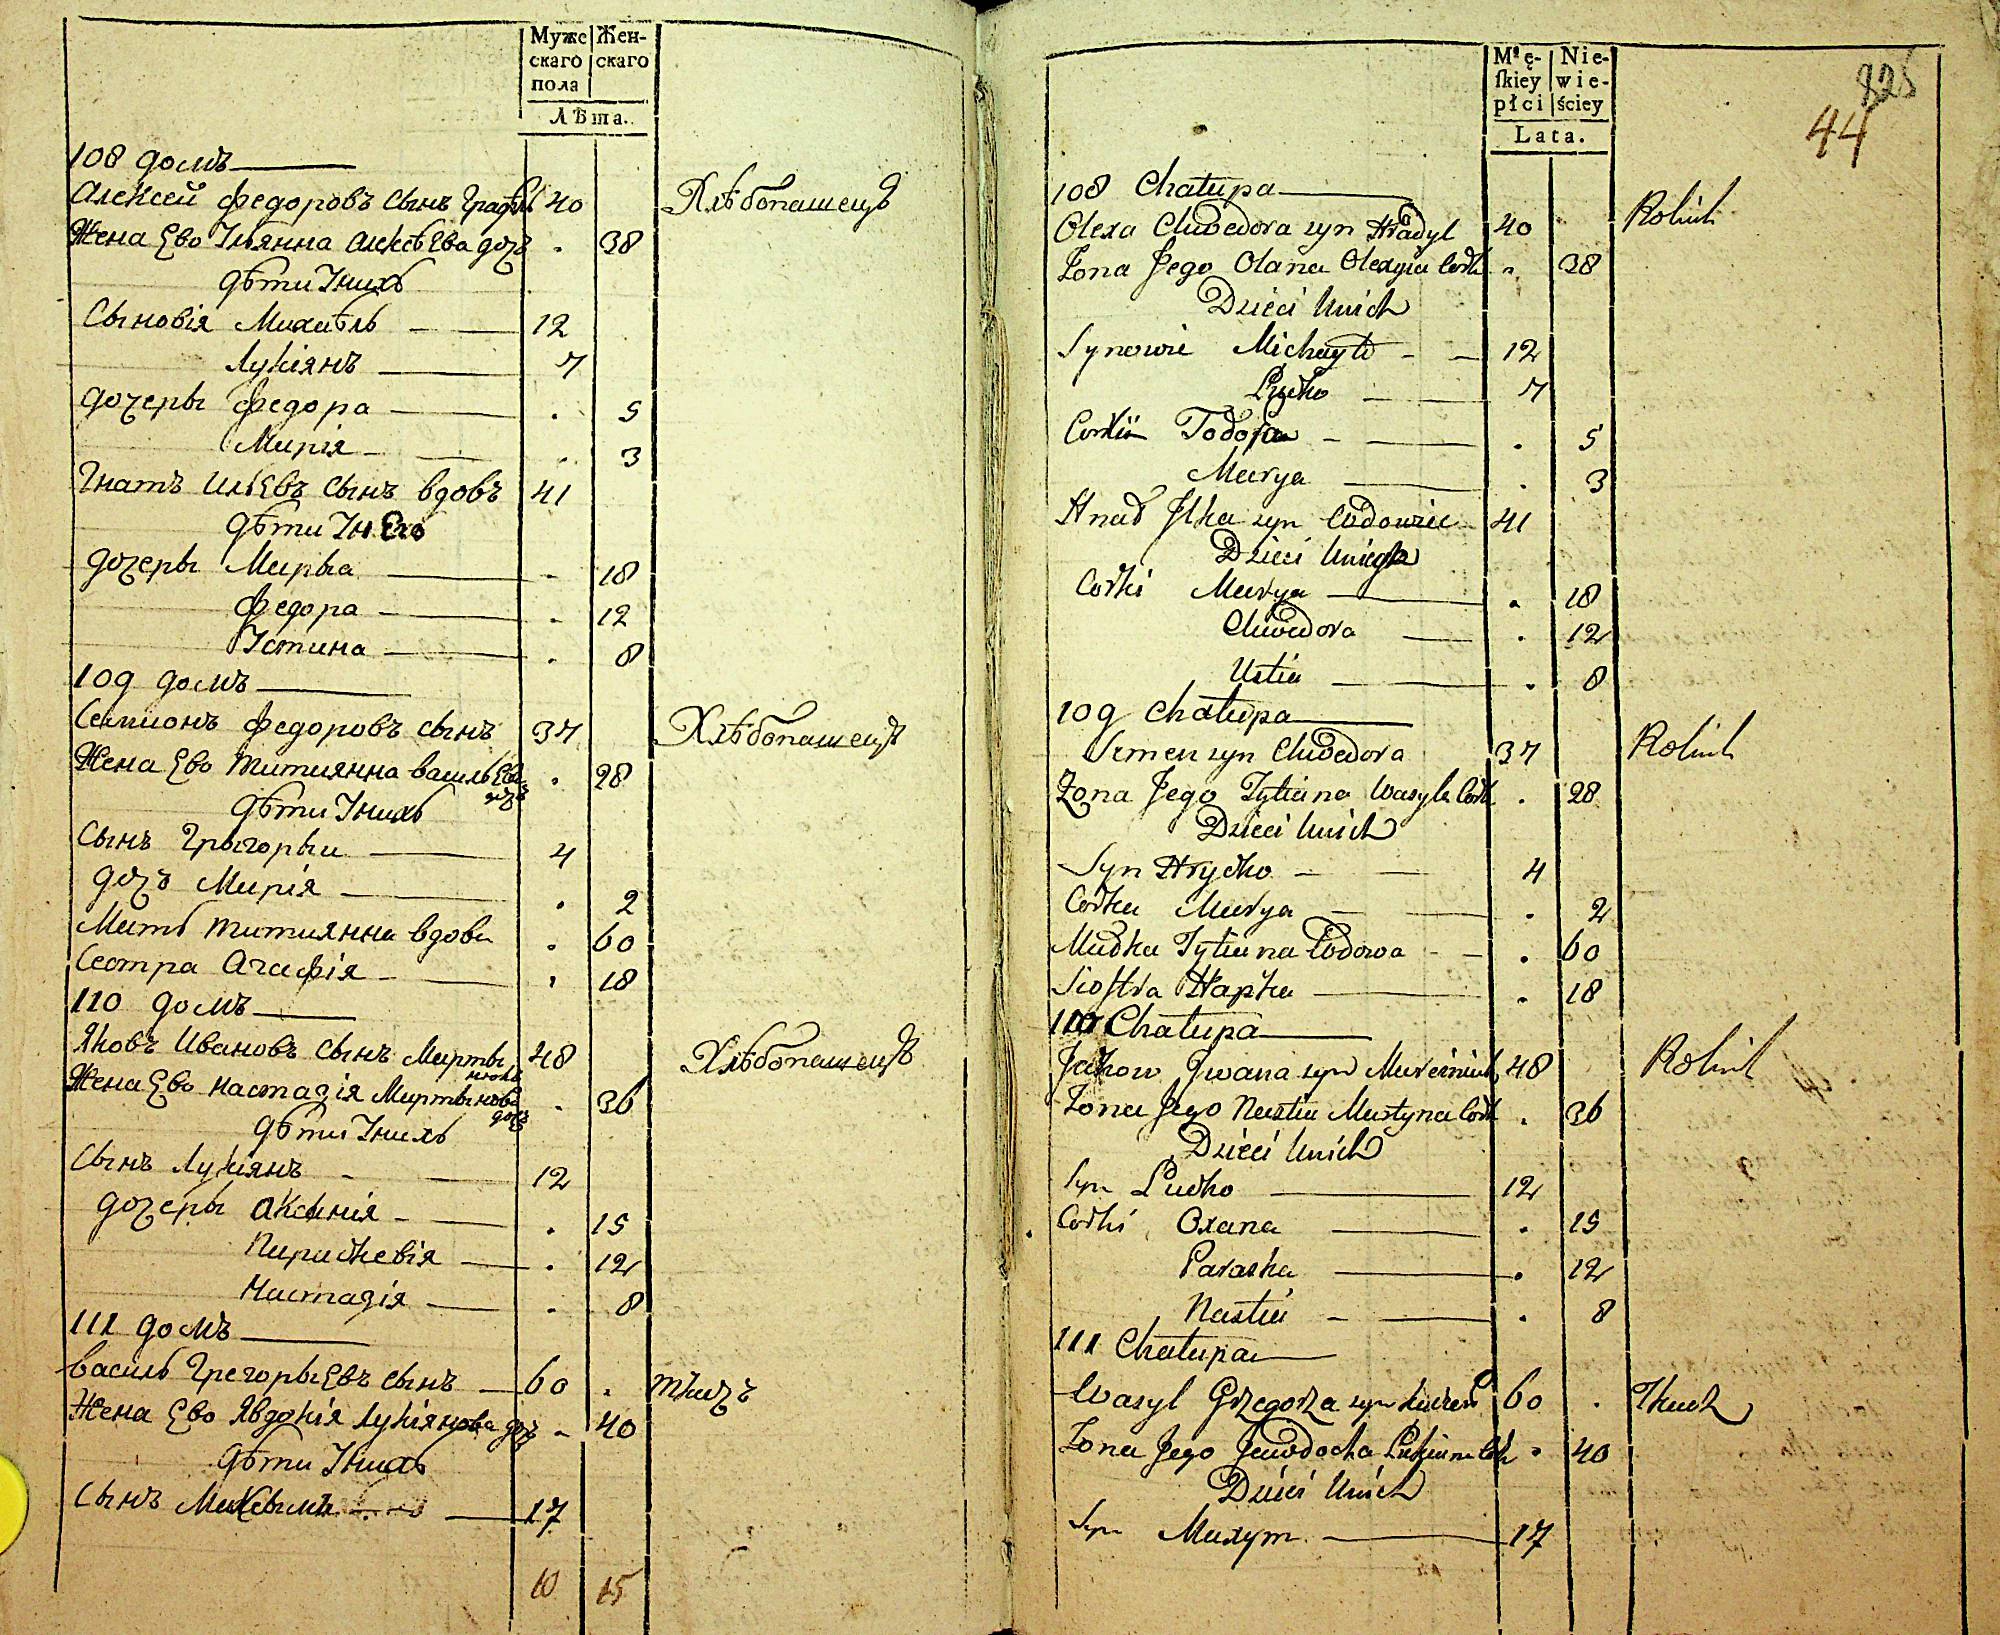 Муже Жен-
скаго скаго
пола
Лѣта.
108 домъ
Алексей Федоровъ сынъ Градыль 40 Хлѣбопашецъ
Жена Ево Ульянна Алексѣева дочъ . 38
Дѣти Унихъ
Сыновія Михаѣль 12
Лукіянъ 7
Дочеры Федора . 5
Марія . 3
Гнатъ Ильевъ сынъ вдовъ 41
Дѣти Унего
Дочеры Марыа 18
Федора . 12
Устина . 8
109 домъ
Семионъ Федоровъ сынъ 37 Хлѣбопашецъ
Жена Ево Татиянна Васильева дочъ . 28
Дѣти Унихъ
Сынъ Грыгорыи 4
Дочъ Марія . 2
Мать Татиянна вдова . 60
Сестра Агафія . 18
110 домъ
Яковъ Ивановъ сынъ 48 Хлѣбопашецъ
Жена Ево Настазія Мартынова дочъ . 36
Дѣти Унихъ
Сынъ Лукіянъ 12
Дочеры Аксинія . 15
Параскевія . 12
Настазія . 8
111 домъ
Василь Грегорыевъ сынъ 60 . ткачъ
Жена Ево Явдокія Лукіянова дочъ 40
Дѣти Унихъ
Сынъ Максымъ 17
10 15
Mę- Nie-
skiey wie-
płci ściey
Lata.
825
44
108 Chałupa
Olexa Chwedora syn Hradyl 40 Rolnik
Żona Jego Olana Olexyia Cork . 38
Dzieci Unich
Synowie Michayło 12
Lucko 7
Corkii Todora . 5
Marya . 3
Hnad Jlka syn Wdowiec 41
Dzieci Uniego
Corki Marya . 18
Chwedora . 12
Ustia . 8
109 Chałupa
Semen syn Chwedora 37 Rolnik
Żona Jego Tytiana Wasyla Cork . 28
Dzieci Unich
Syn Hrycko 4
Corka Marya . 2
Matka Tytiana Wdowa . 60
Siostra Hapka . 18
110 Chałupa
Jakow Jwana syn 48 Rolnik
Żona Jego Nastia Martyna Cork . 36
Dzieci Unich
Syn Lucko 12
Corki Oxana . 15
Paraska . 12
Nastia . 8
111 Chałupa
Wasyl Grzegorza syn 60 . Tkacz
Żona Jego Jewdocha Cork . 40
Dzieci Unich
Syn Maxym 17